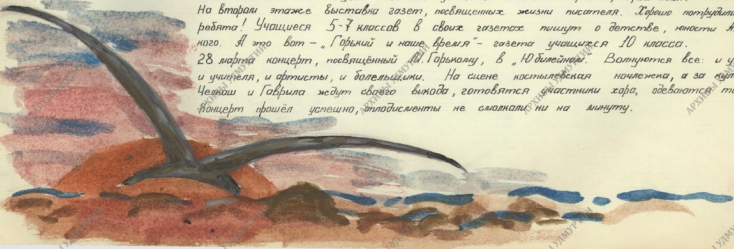 На втором этаже выставка газет, посвященных жизни писателя. Хорошо потрудили
ребята! Учащиеся 5-7 классов в своих газетах пишут о детстве, юности
кого. А это вот - „Горький и наше время" - газета учащихся 10 класса.
28 марта концерт, посвящённый М. Горькому, в „Юбилейном". Волнуются все: и у
и учителя, и артисты, и болельщики. На сцене костылевская ночлежка, а за кул
Челкаш и Гаврила ждут своего выхода, готовятся участники хора, одеваются т
Концерт прошёл успешно, аплодисменты не смолкали ни на минуту.